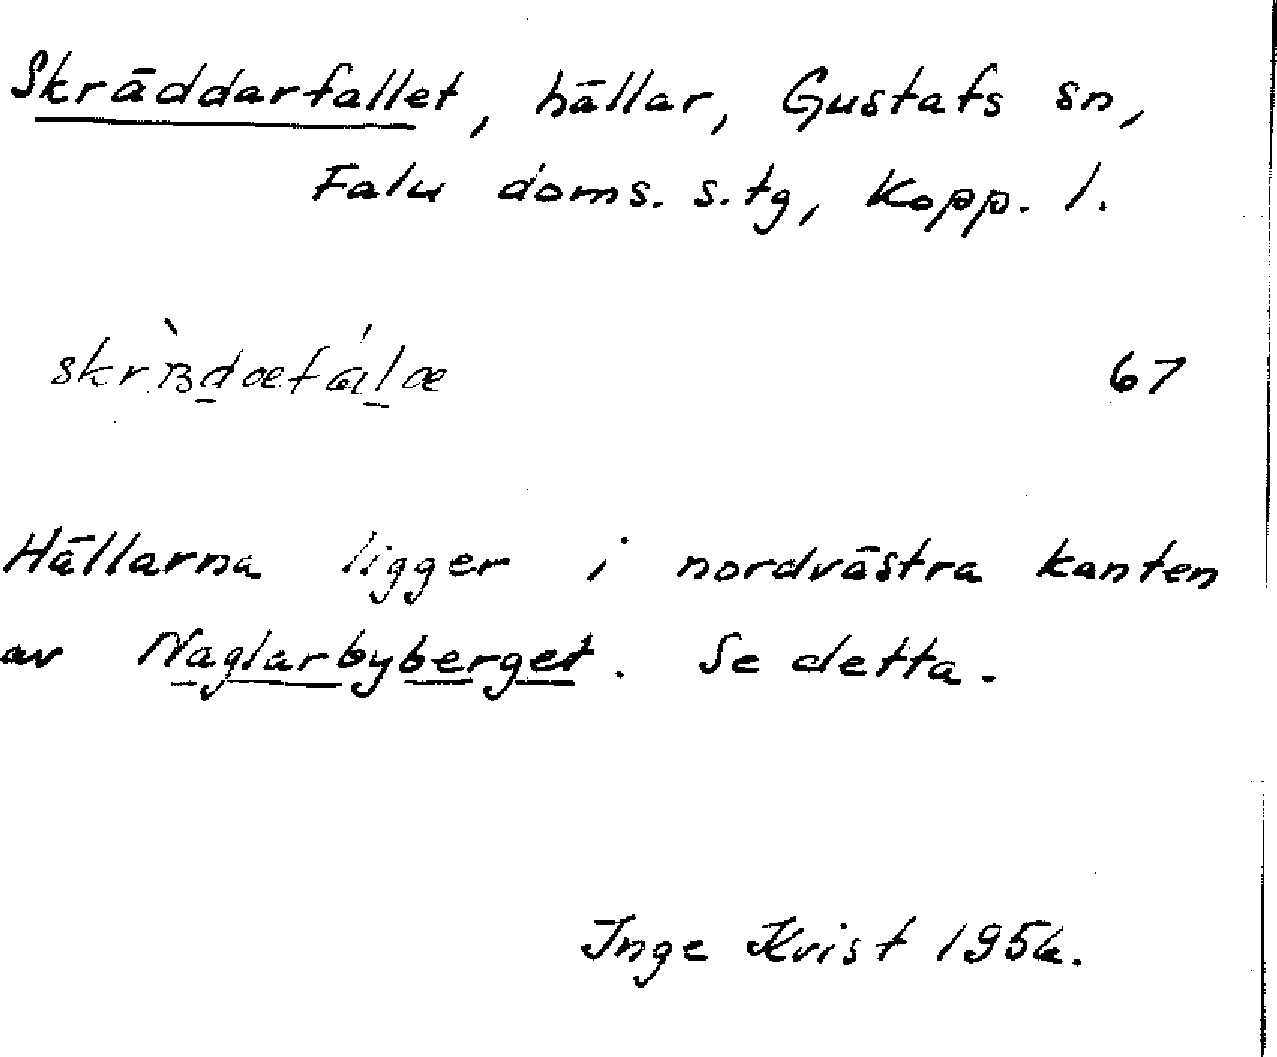 Skräddarfallet, hällar, Gustafs sn,
Falu doms. s. tg, Kopp. l.
67
Hällarna ligger i nordvästra kanten
av Naglarbyberget. Se detta.
Inge Kvist